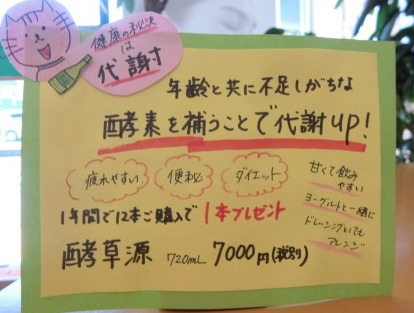 健康の秘訣
は
代謝
年齢と共に不足しがちな
酵素を補うことで代謝up!
疲れやすい
便秘
ダイエット
甘くて飲み
やすい
ヨーグルトと一緒に
ドレッシングとしても
アレンジ
1年間で12本ご購入で1本プレゼント
酵草源 720mL 7000円(税別)